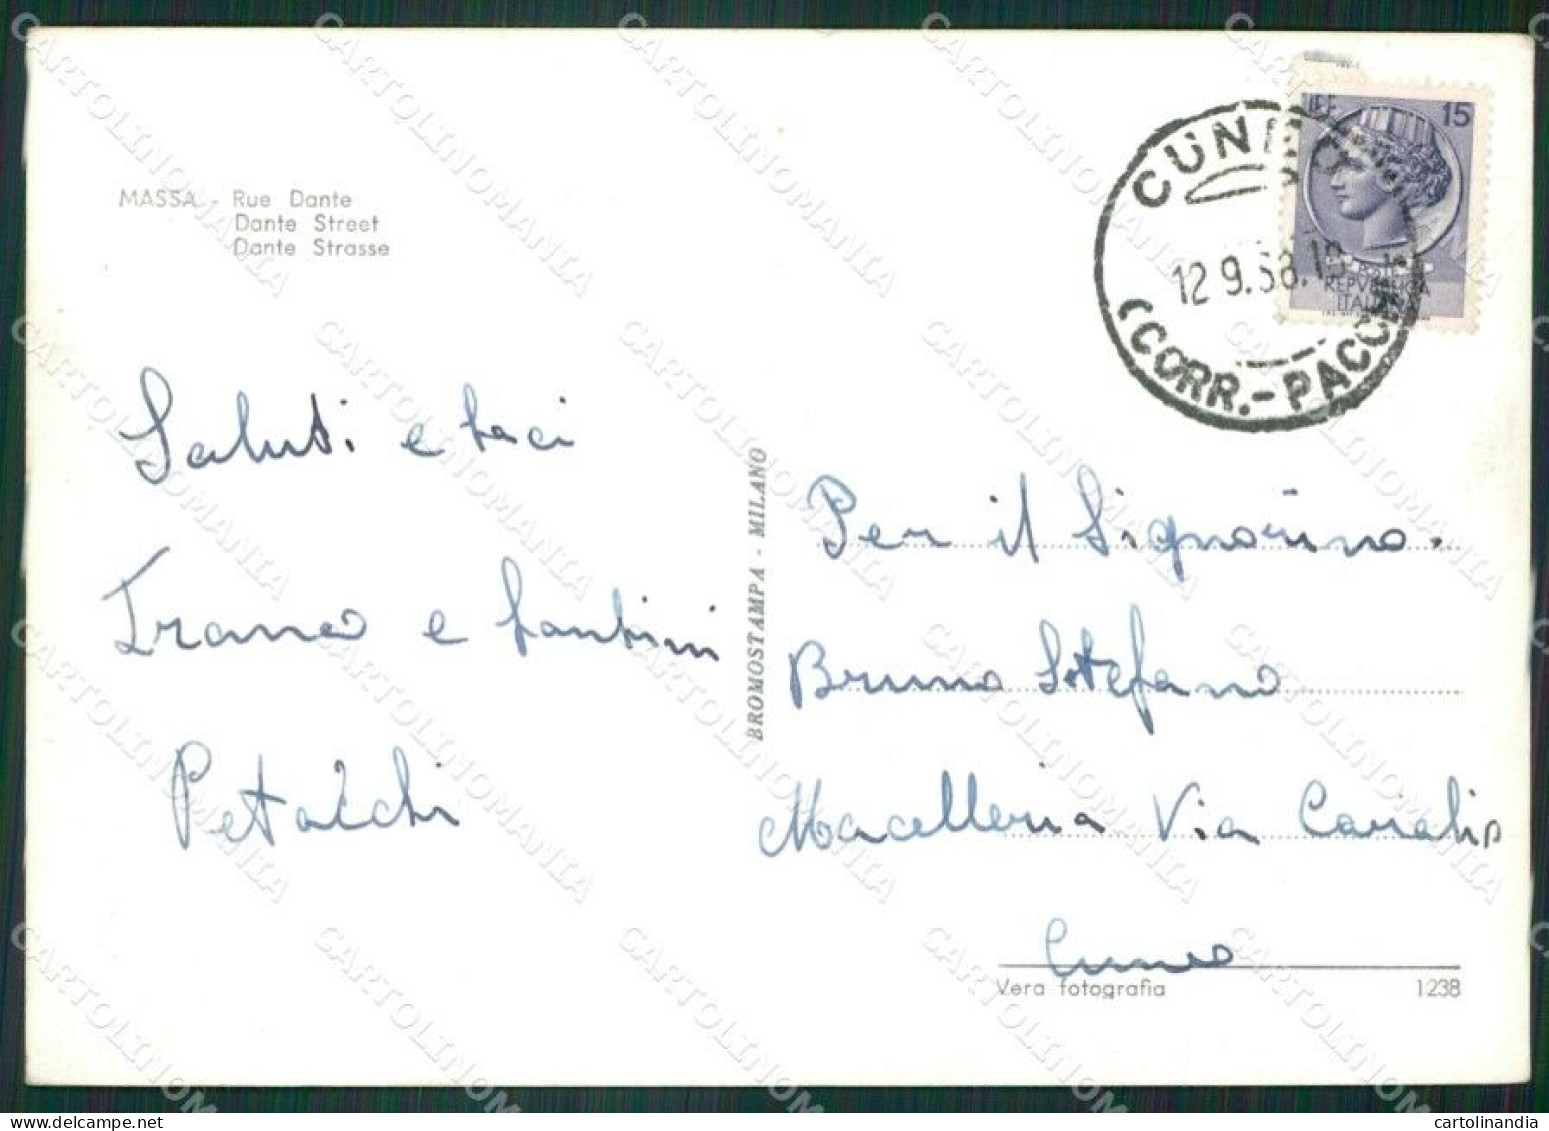 MASSA - Rue Dante
Dante Street
Dante Strasse
CUNEO
12 9.58.18
(CORR.-PACCHI)
LIRE 15
REPVBBLICA
ITALIANA
Saluti e baci
Franco e bambini
BROMOSTAMPA - MILANO
Per il Signorino
Bruno Stefano
Macelleria Via
Cuneo
Vera fotografia 1238
CARTOLINOMANIA
cartolinandia